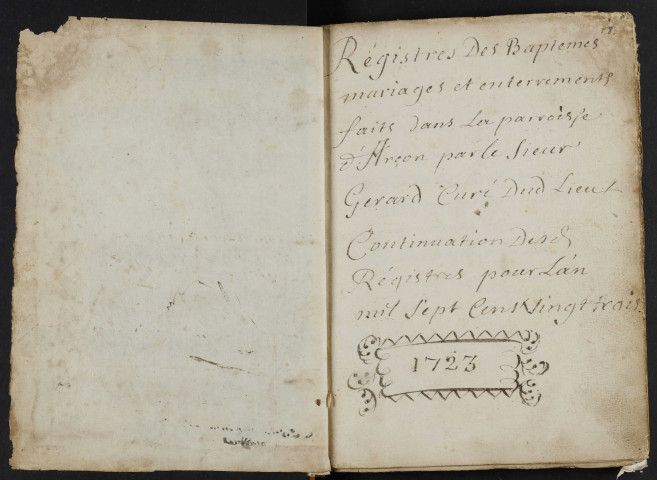 Régistres Des Baptemes
mariages et enterrements
faits dans La parroisse
d'Arçon par le Sieur
Gerard Curé Dud Lieu
Continuation Desd
Régistres pour L'an
mil Sept Cens Vingt trois
1723